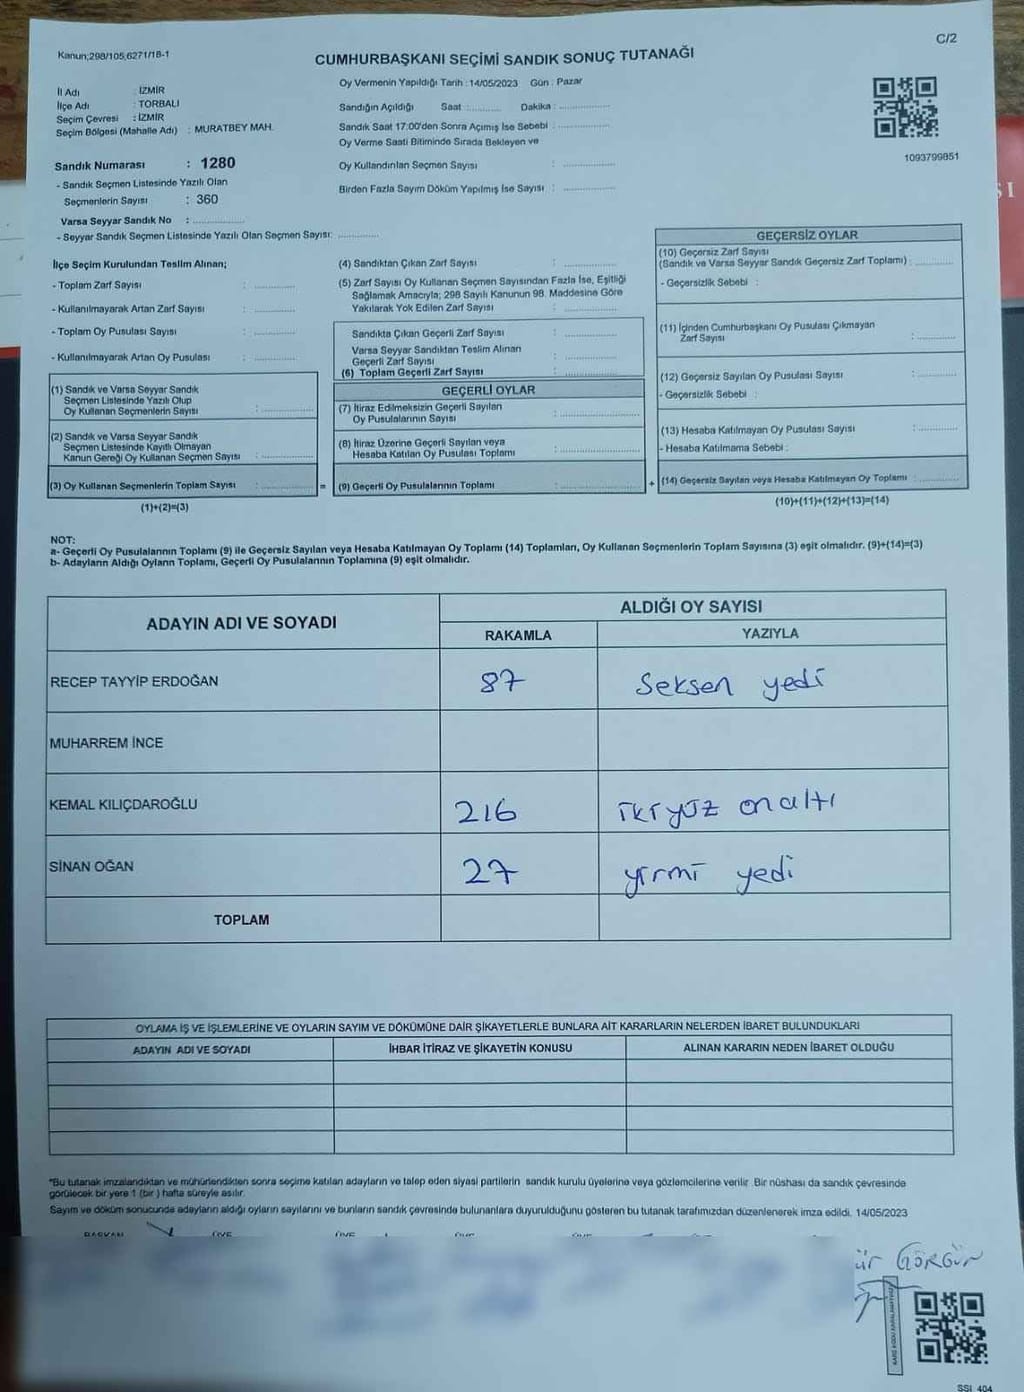 Kanun;298/105,6271/18-1
C/2
CUMHURBAŞKANI SEÇİMİ SANDIK SONUÇ TUTANAĞI
İl Adı : İZMİR
İlçe Adı : TORBALI
Seçim Çevresi : İZMİR
Seçim Bölgesi (Mahalle Adı) : MURATBEY MAH.
Sandık Numarası : 1280
- Sandık Seçmen Listesinde Yazılı Olan
Seçmenlerin Sayısı : 360
Varsa Seyyar Sandık No : ..............
- Seyyar Sandık Seçmen Listesinde Yazılı Olan Seçmen Sayısı: ............
Oy Vermenin Yapıldığı Tarih : 14/05/2023 Gün : Pazar
Sandığın Açıldığı Saat :.......... Dakika : ..............
Sandık Saat 17:00'den Sonra Açımış İse Sebebi : ..............
Oy Verme Saati Bitiminde Sırada Bekleyen ve
Oy Kullandırılan Seçmen Sayısı : ..............
Birden Fazla Sayım Döküm Yapılmış İse Sayısı : ..............
1093799851
İlçe Seçim Kurulundan Teslim Alınan;
- Toplam Zarf Sayısı : ............
- Kullanılmayarak Artan Zarf Sayısı : ............
- Toplam Oy Pusulası Sayısı : ............
- Kullanılmayarak Artan Oy Pusulası : ............
(1) Sandık ve Varsa Seyyar Sandık
Seçmen Listesinde Yazılı Olup
Oy Kullanan Seçmenlerin Sayısı : ............
(2) Sandık ve Varsa Seyyar Sandık
Seçmen Listesinde Kayıtlı Olmayan
Kanun Gereği Oy Kullanan Seçmen Sayısı : ............
(3) Oy Kullanan Seçmenlerin Toplam Sayısı : ............ =
(1)+(2)=(3)
(4) Sandıktan Çıkan Zarf Sayısı : ..............
(5) Zarf Sayısı Oy Kullanan Seçmen Sayısından Fazla İse, Eşitliği
Sağlamak Amacıyla; 298 Sayılı Kanunun 98. Maddesine Göre
Yakılarak Yok Edilen Zarf Sayısı : ..............
Sandıkta Çıkan Geçerli Zarf Sayısı : ..............
Varsa Seyyar Sandıktan Teslim Alınan
Geçerli Zarf Sayısı : ..............
(6) Toplam Geçerli Zarf Sayısı : ..............
GEÇERLİ OYLAR
(7) İtiraz Edilmeksizin Geçerli Sayılan
Oy Pusulalarının Sayısı : ..............
(8) İtiraz Üzerine Geçerli Sayılan veya
Hesaba Katılan Oy Pusulası Toplamı : ..............
(9) Geçerli Oy Pusulalarının Toplamı : .............. +
GEÇERSİZ OYLAR
(10) Geçersiz Zarf Sayısı
(Sandık ve Varsa Seyyar Sandık Geçersiz Zarf Toplamı) : ............
- Geçersizlik Sebebi :
(11) İçinden Cumhurbaşkanı Oy Pusulası Çıkmayan
Zarf Sayısı : ............
(12) Geçersiz Sayılan Oy Pusulası Sayısı : ............
- Geçersizlik Sebebi :
(13) Hesaba Katılmayan Oy Pusulası Sayısı : ............
- Hesaba Katılmama Sebebi :
(14) Geçersiz Sayılan veya Hesaba Katılmayan Oy Toplamı : ............
(10)+(11)+(12)+(13)=(14)
NOT:
a- Geçerli Oy Pusulalarının Toplamı (9) ile Geçersiz Sayılan veya Hesaba Katılmayan Oy Toplamı (14) Toplamları, Oy Kullanan Seçmenlerin Toplam Sayısına (3) eşit olmalıdır. (9)+(14)=(3)
b- Adayların Aldığı Oyların Toplamı, Geçerli Oy Pusulalarının Toplamına (9) eşit olmalıdır.
ADAYIN ADI VE SOYADI
ALDIĞI OY SAYISI
RAKAMLA YAZIYLA
RECEP TAYYİP ERDOĞAN 87 Seksen yedi
MUHARREM İNCE
KEMAL KILIÇDAROĞLU 216 ikiyüz onaltı
SİNAN OĞAN 27 yirmi yedi
TOPLAM
OYLAMA İŞ VE İŞLEMLERİNE VE OYLARIN SAYIM VE DÖKÜMÜNE DAİR ŞİKAYETLERLE BUNLARA AİT KARARLARIN NELERDEN İBARET BULUNDUKLARI
ADAYIN ADI VE SOYADI İHBAR İTİRAZ VE ŞİKAYETİN KONUSU ALINAN KARARIN NEDEN İBARET OLDUĞU
*Bu tutanak imzalandıktan ve mühürlendikten sonra seçime katılan adayların ve talep eden siyasi partilerin sandık kurulu üyelerine veya gözlemcilerine verilir. Bir nüshası da sandık çevresinde
görülecek bir yere 1 (bir ) hafta süreyle asılır.
Sayım ve döküm sonucunda adayların aldığı oyların sayılarını ve bunların sandık çevresinde bulunanlara duyurulduğunu gösteren bu tutanak tarafımızdan düzenlenerek imza edildi. 14/05/2023
BAŞKAN ÜYE ÜYE ÜYE ÜYE
ür GÖRGÜN
SSI_404